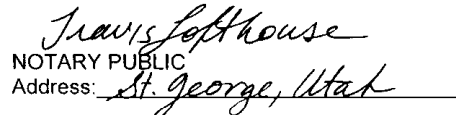 Travis Lofthouse
NOTARY PUBLIC
Address: St. George, Utah